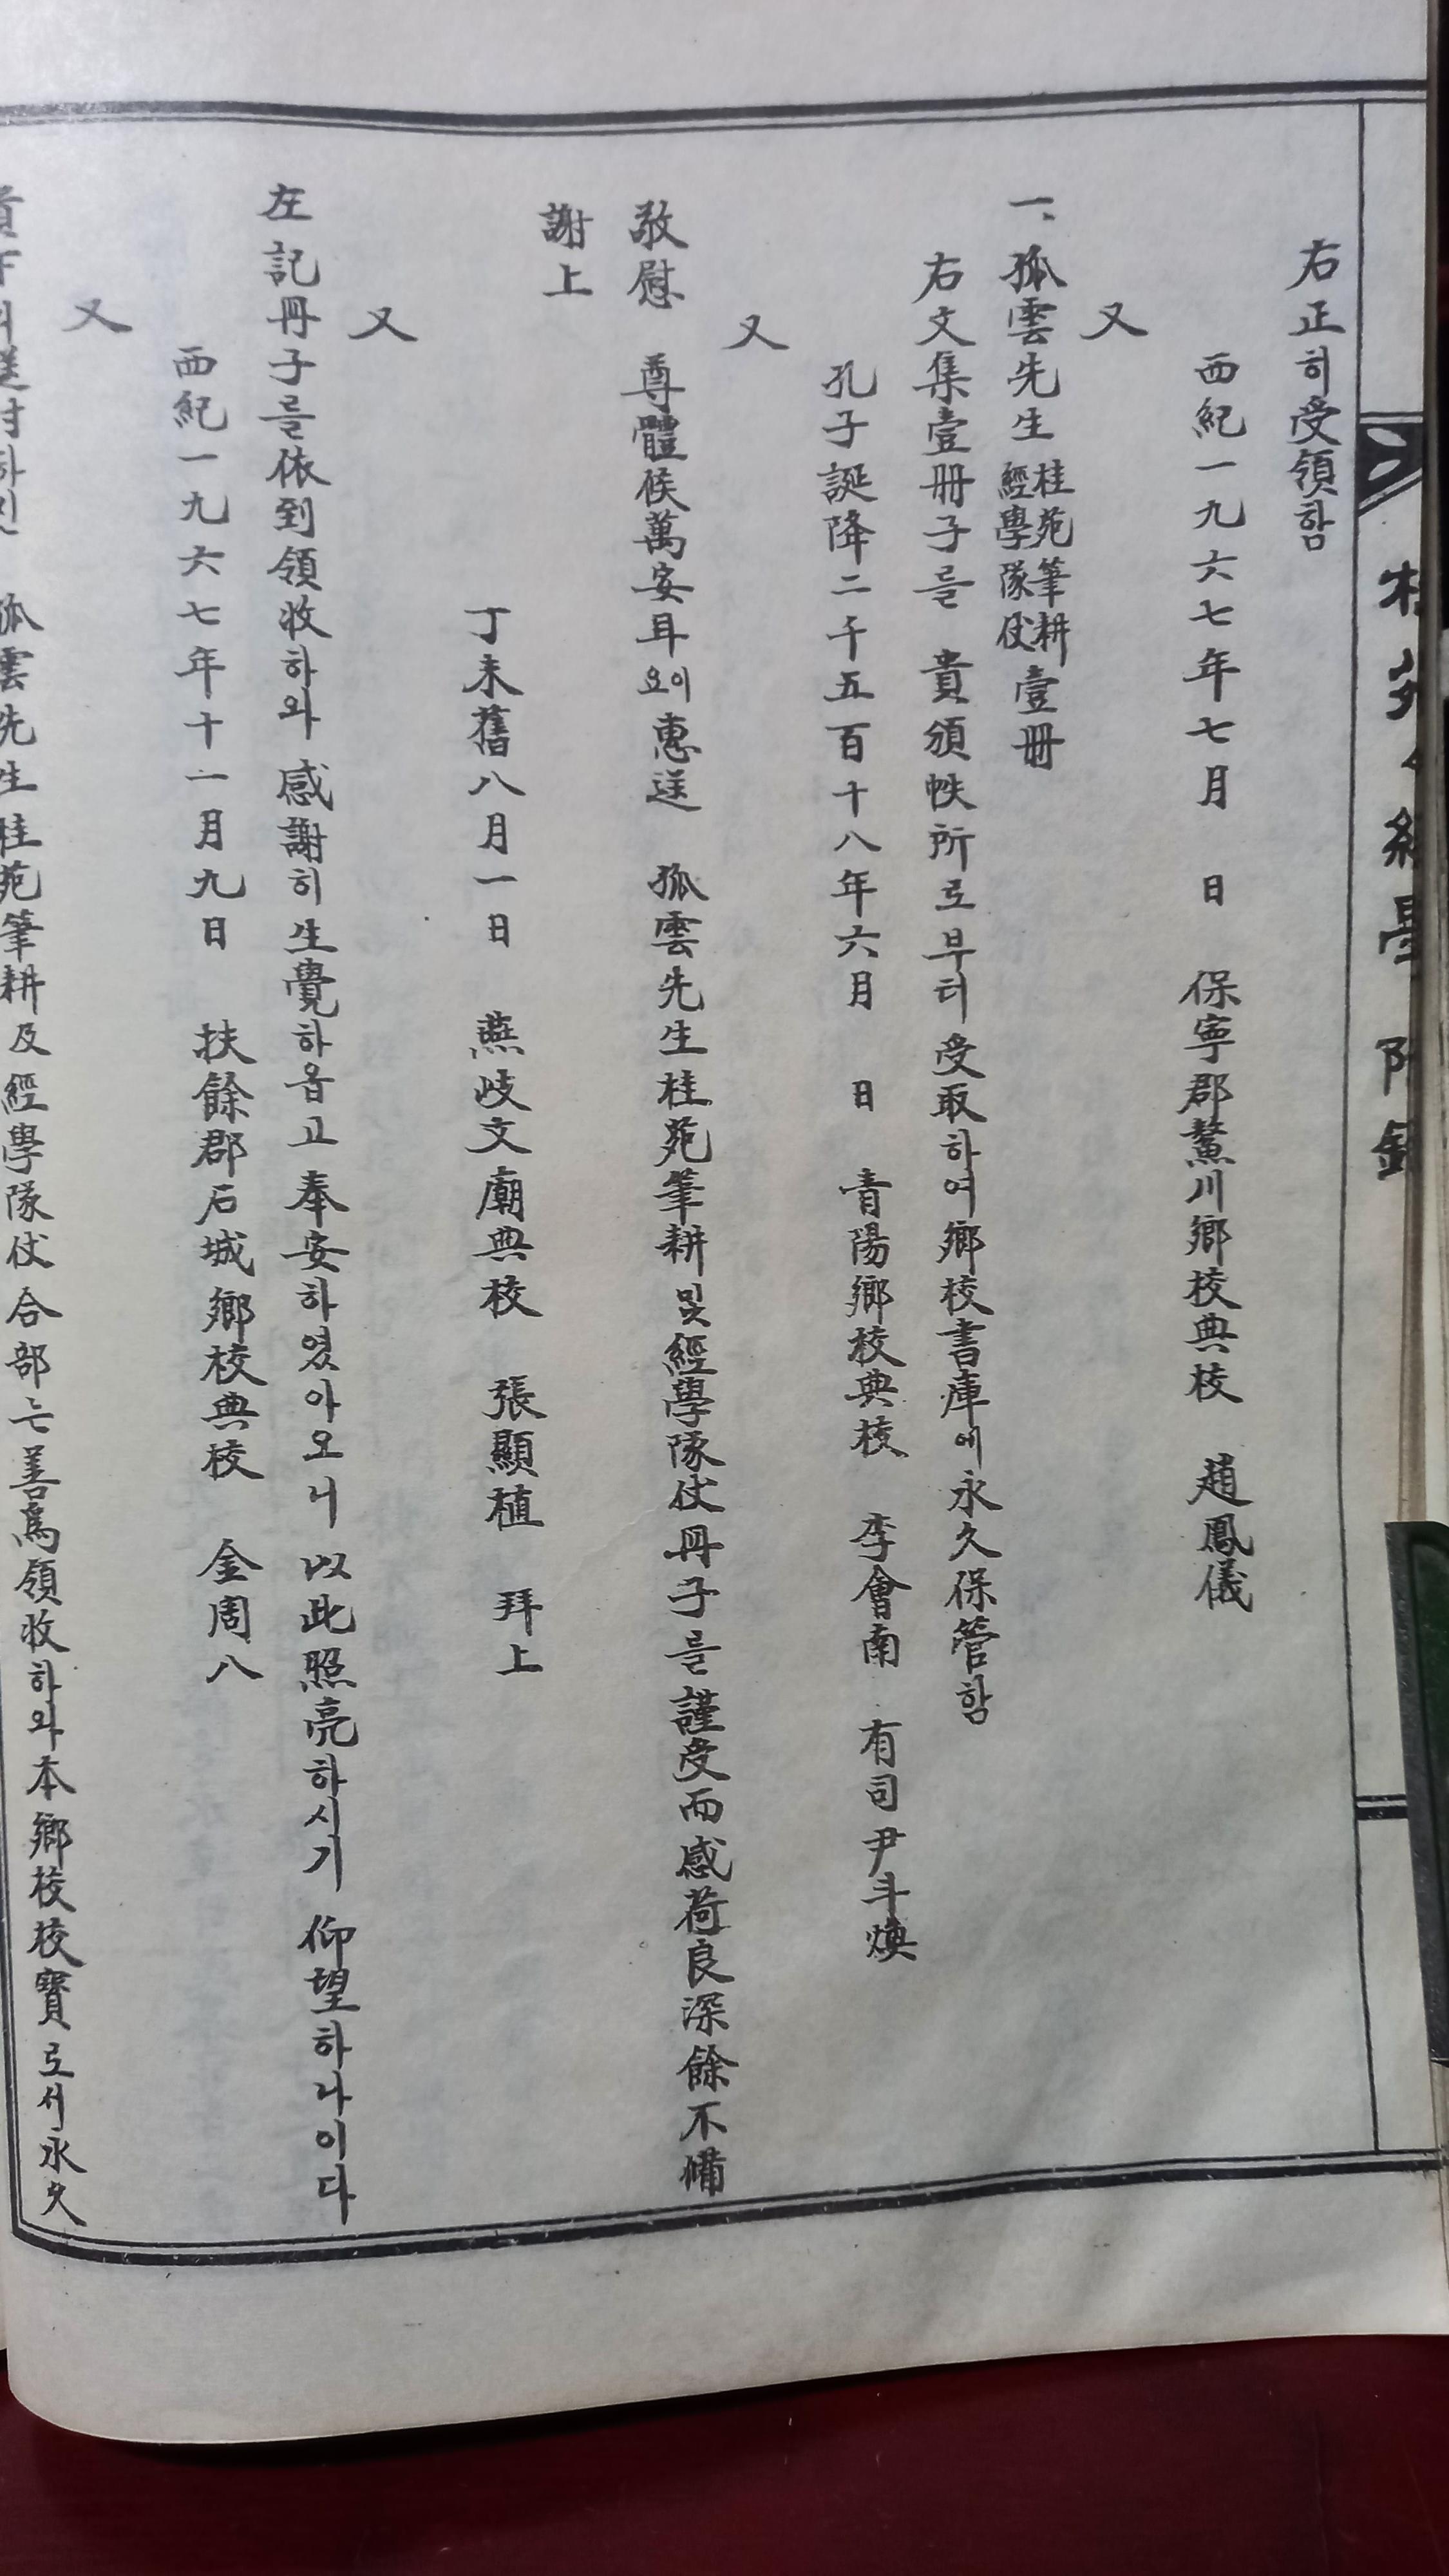 右正히受領함
西紀一九六七年七月 日 保寧郡鰲川鄕校典校 趙鳳儀
又
一、孤雲先生 桂苑筆耕 經學隊仗 壹冊
右文集壹冊子를 貴頒帙所로부터受取하여鄕校書庫에永久保管함
孔子誕降二千五百十八年六月 日 青陽鄕校典校 李會南 有司尹斗煥
又
敬慰 尊體候萬安耳요이惠送 孤雲先生桂苑筆耕및經學隊仗冊子를謹受而感荷良深餘不備
謝上
丁未舊八月一日 燕岐文廟典校 張顯植 拜上
又
左記冊子를依到領收하와 感謝히生覺하옵고奉安하였아오니 以此照亮하시기 仰望하나이다
西紀一九六七年十一月九日 扶餘郡石城鄕校典校 金周八
又
孤雲先生桂苑筆耕及經學隊仗合部는善爲領收하와本鄕校校寶로서永久